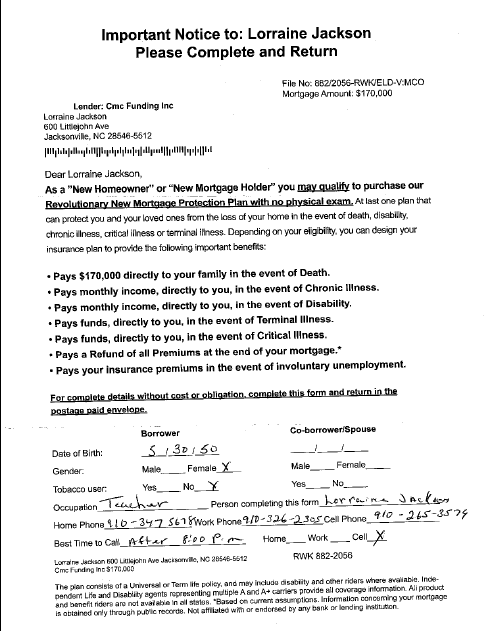 Important Notice to: Lorraine Jackson
Please Complete and Return
File No: 882/2056-RWK/ELD-V:MCO
Mortgage Amount: $170,000
Lender: Cmc Funding Inc
Lorraine Jackson
600 Littlejohn Ave
Jacksonville, NC 28546-5512
Dear Lorraine Jackson,
As a "New Homeowner" or "New Mortgage Holder" you may qualify to purchase our
Revolutionary New Mortgage Protection Plan with no physical exam. At last one plan that
can protect you and your loved ones from the loss of your home in the event of death, disability,
chronic illness, critical illness or terminal illness. Depending on your eligibility, you can design your
insurance plan to provide the following important benefits:
• Pays $170,000 directly to your family in the event of Death.
• Pays monthly income, directly to you, in the event of Chronic Illness.
• Pays monthly income, directly to you, in the event of Disability.
• Pays funds, directly to you, in the event of Terminal Illness.
• Pays funds, directly to you, in the event of Critical Illness.
• Pays a Refund of all Premiums at the end of your mortgage.*
• Pays your insurance premiums in the event of involuntary unemployment.
For complete details without cost or obligation, complete this form and return in the
postage paid envelope.
Borrower Co-borrower/Spouse
Date of Birth: 5/30/50 __/__/__
Gender: Male____ Female X Male____ Female____
Tobacco user: Yes____ No X Yes____ No____
Occupation Teacher Person completing this form Lorraine Jackson
Home Phone 910-347 5678 Work Phone 910-326-2305 Cell Phone 910-265-3574
Best Time to Call After 8:00 P.m Home____ Work____ Cell X
Lorraine Jackson 600 Littlejohn Ave Jacksonville, NC 28546-5512 RWK 882-2056
Cmc Funding Inc $170,000
The plan consists of a Universal or Term life policy, and may include disability and other riders where available. Inde-
pendent Life and Disability agents representing multiple A and A+ carriers provide all coverage information. All product
and benefit riders are not available in all states. *Based on current assumptions. Information concerning your mortgage
is obtained only through public records. Not affiliated with or endorsed by any bank or lending institution.